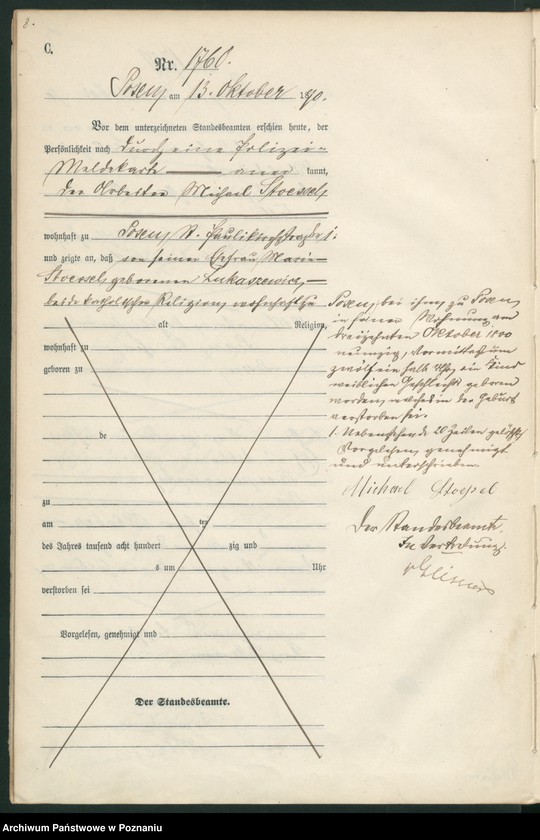 C.
Nr. 1760.
Posen am 13. Oktober 1890.
Vor dem unterzeichneten Standesbeamten erschien heute, der
Persönlichkeit nach durch eine Polizei-
Meldekarte aner kannt,
der Arbeiter Michael Stoessel,
wohnhaft zu Posen, St. Paulikirchstraße
und zeigte an, daß von seiner Ehefrau Marie
Stoessel, geborenen Lukaszewicz,
beide katholischer Religion, wohnhaft zu
alt Religion,
wohnhaft zu
geboren zu
de
zu
am ten
des Jahres tausend acht hundert zig und
s um Uhr
verstorben sei
Vorgelesen, genehmigt und
Der Standesbeamte.
Posen, bei ihm, zu Posen
in seiner Wohnung am
dreizehnten Oktober 1800
neunzig, Vormittags um
zwölf ein halb Uhr, ein Kind
weiblichen Geschlechts geboren
worden, welches in der Geburt
verstorben sei.
1. Nebenstehende 20 Zeilen gelöscht.
Vorgelesen, genehmigt
und unterschrieben
Michael Stoessel
Der Standesbeamte.
In Vertretung.
Archiwum Państwowe w Poznaniu